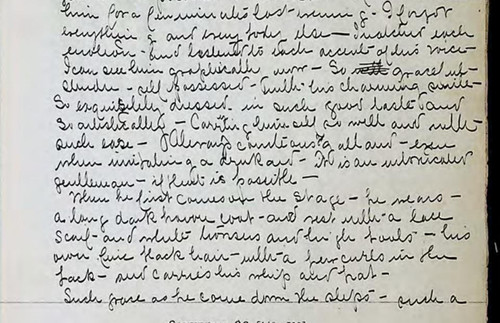 him for a few minutes last evening - I forgot
everything and everybody else - I watched each
emotion - and listened to each accent of his voice -
I can see him graphically now - So graceful -
slender - self possessed - with his charming smile -
So exquisitely dressed in such good taste and
so artistically - Carrying himself so well and with
such ease - Always courteous to all and - even
when imitating a drunkard - It is an intoxicated
gentleman - if that is possible -
When he first comes on the Stage - he wears -
a long dark brown coat - and vest with a lace
Scarf - and white trousers and high boots - his
own fine black hair - with a few curls in the
back - and carries his whip and hat -
Such grace as he come down the steps - such a